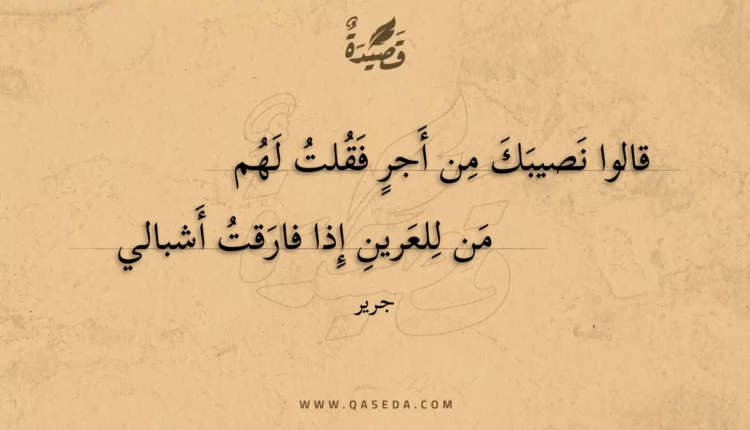 قَصِيْدَةٌ
قالوا نَصيبَكَ مِن أَجرٍ فَقُلتُ لَهُم
مَن لِلعَرينِ إِذا فارَقتُ أَشبالي
جرير
WWW.QASEDA.COM